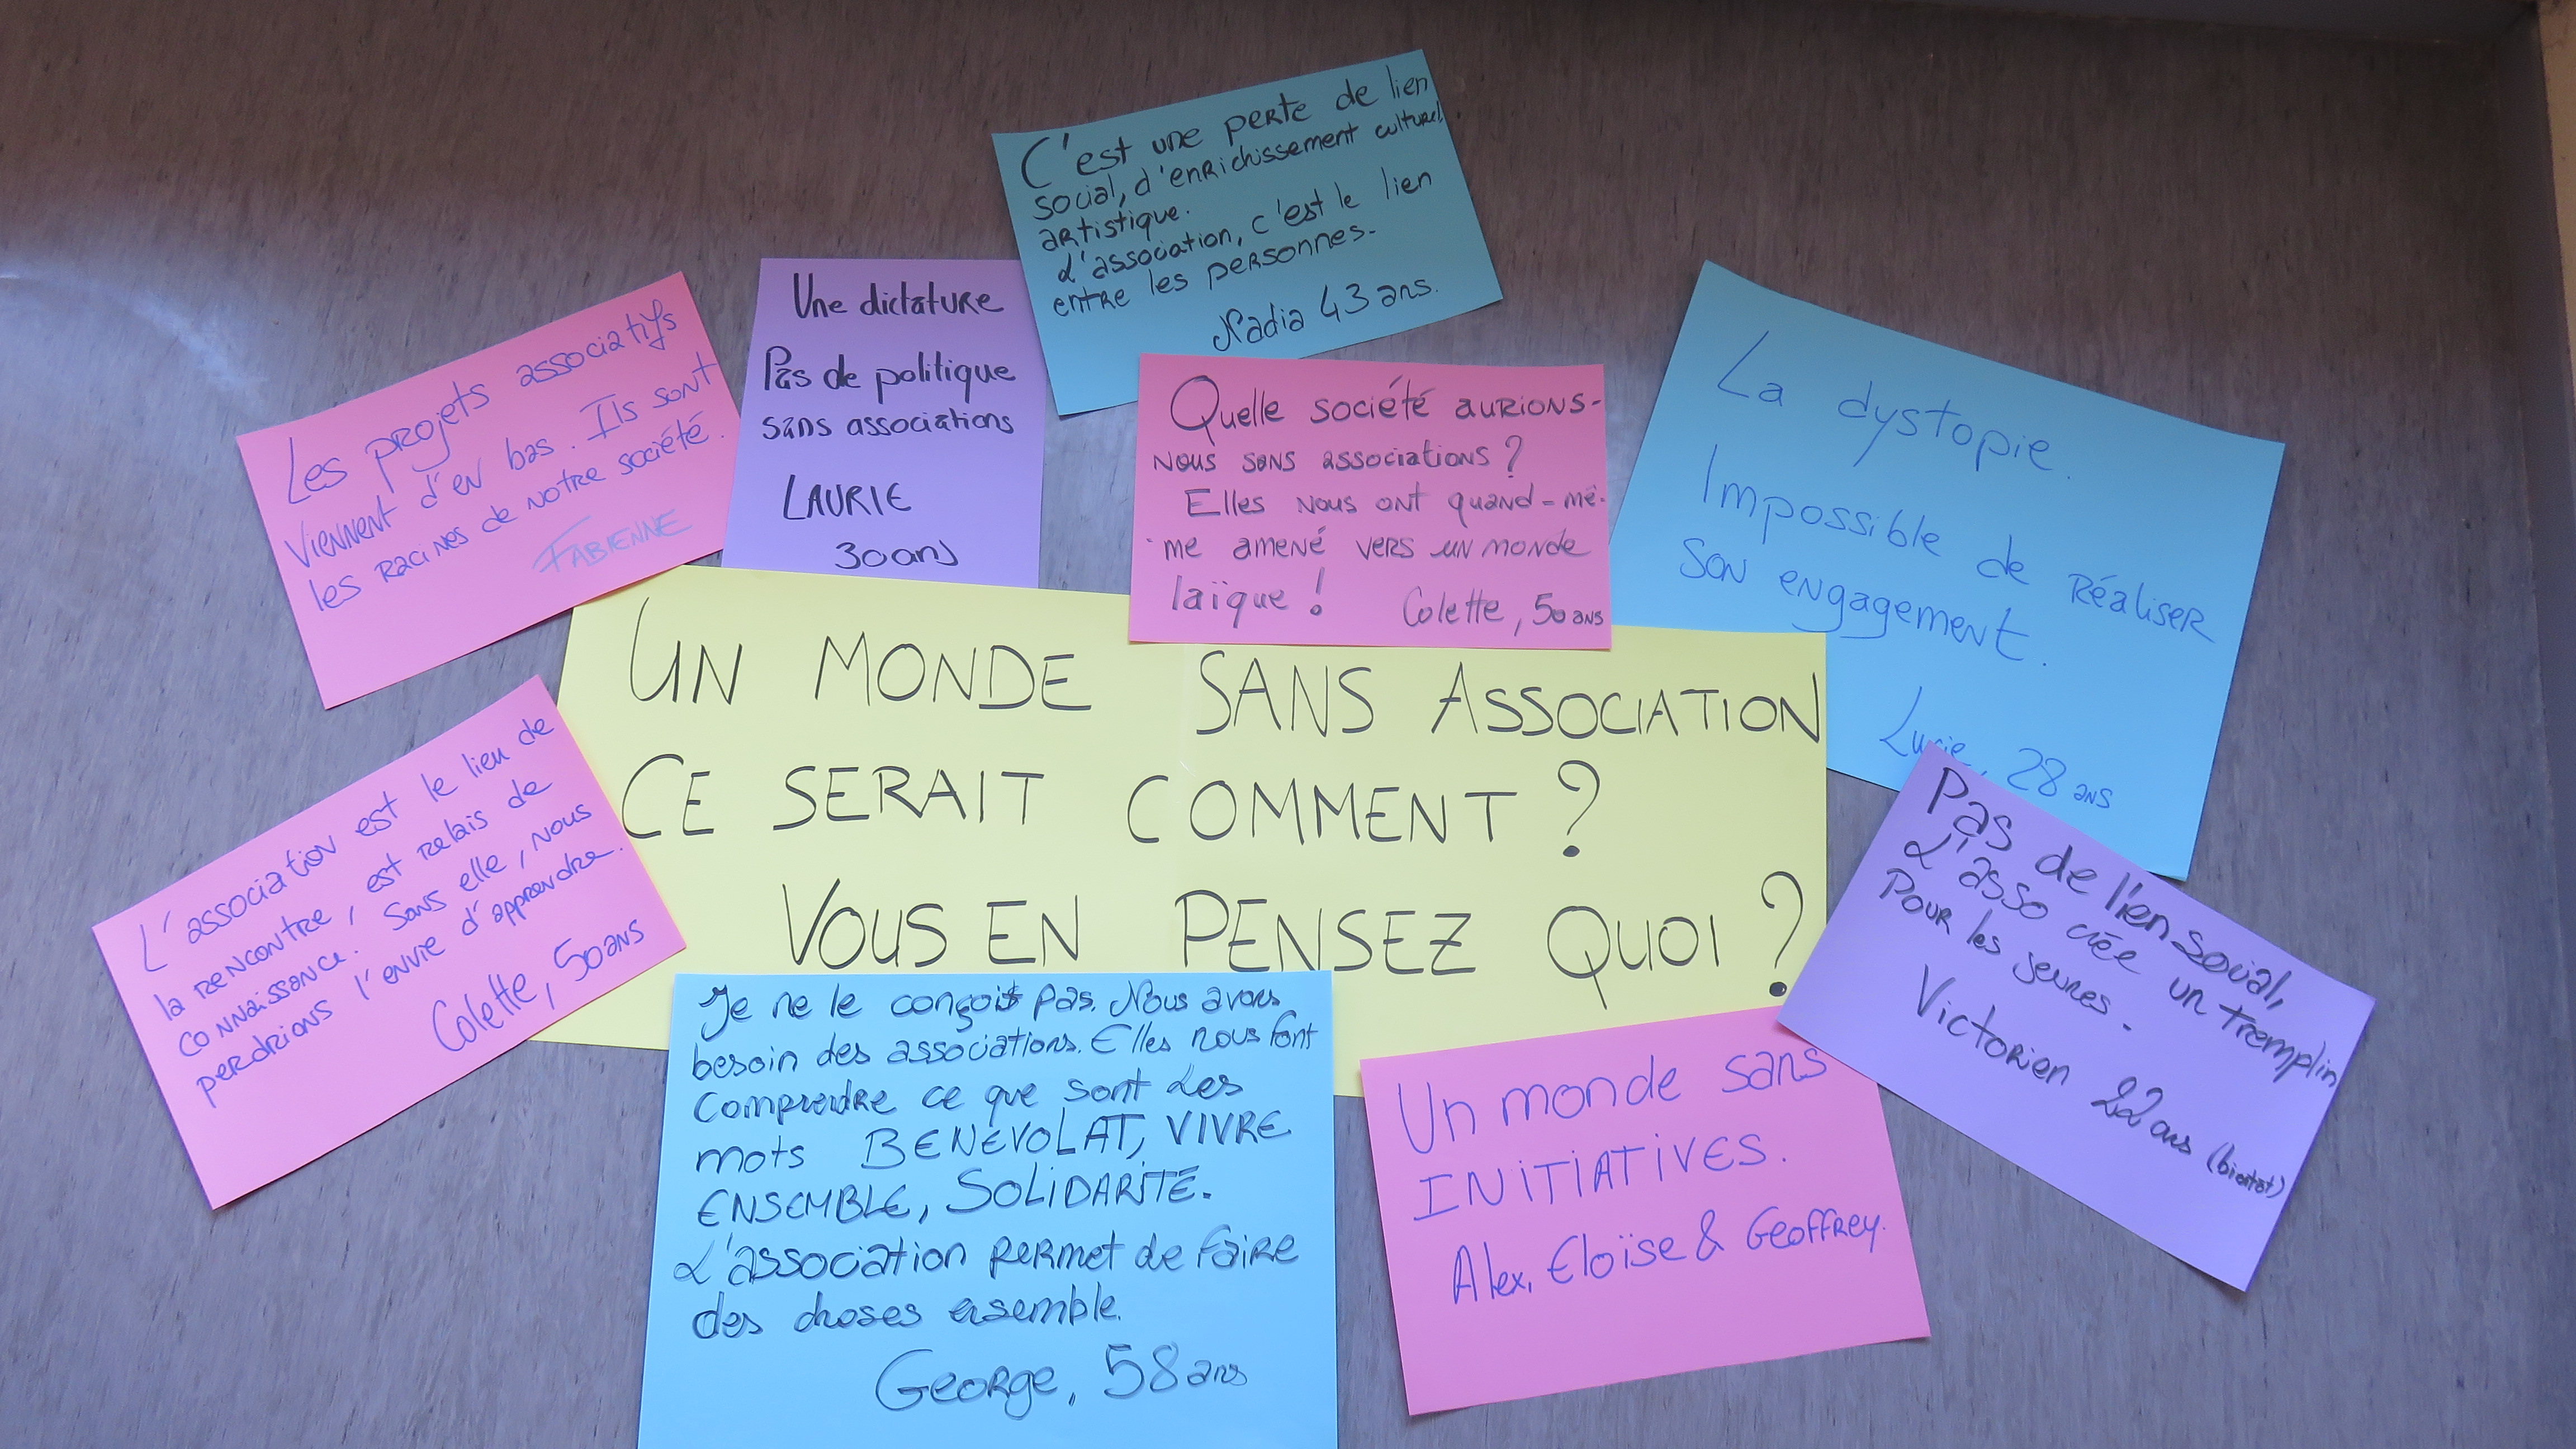 C'est une perte de lien
social, d'enrichissement culturel
artistique.
L'association, c'est le lien
entre les personnes.
Nadia 43 ans.
Les projets associatifs
viennent d'en bas. Ils sont
les racines de notre société.
FABIENNE
Une dictature
Pas de politique
sans associations
LAURIE
30 ans
Quelle société aurions-
nous sans associations ?
Elles nous ont quand-mê-
me amené vers un monde
laïque !
Colette, 50 ans
La dystopie.
Impossible de réaliser
son engagement.
Lucie, 28 ans
UN MONDE SANS ASSOCIATION
CE SERAIT COMMENT ?
VOUS EN PENSEZ QUOI ?
L'association est le lieu de
la rencontre, est relais de
connaissance. Sans elle, nous
perdrions l'envie d'apprendre.
Colette, 50 ans
Je ne le conçois pas. Nous avons
besoin des associations. Elles nous font
comprendre ce que sont les
mots BENEVOLAT, VIVRE
ENSEMBLE, SOLIDARITE.
L'association permet de faire
des choses ensemble.
George, 58 ans
Un monde sans
INITIATIVES.
Alex, Eloïse & Geoffrey.
Pas de lien social,
L'asso crée un tremplin
Pour les jeunes.
Victorien 22 ans (bientôt)